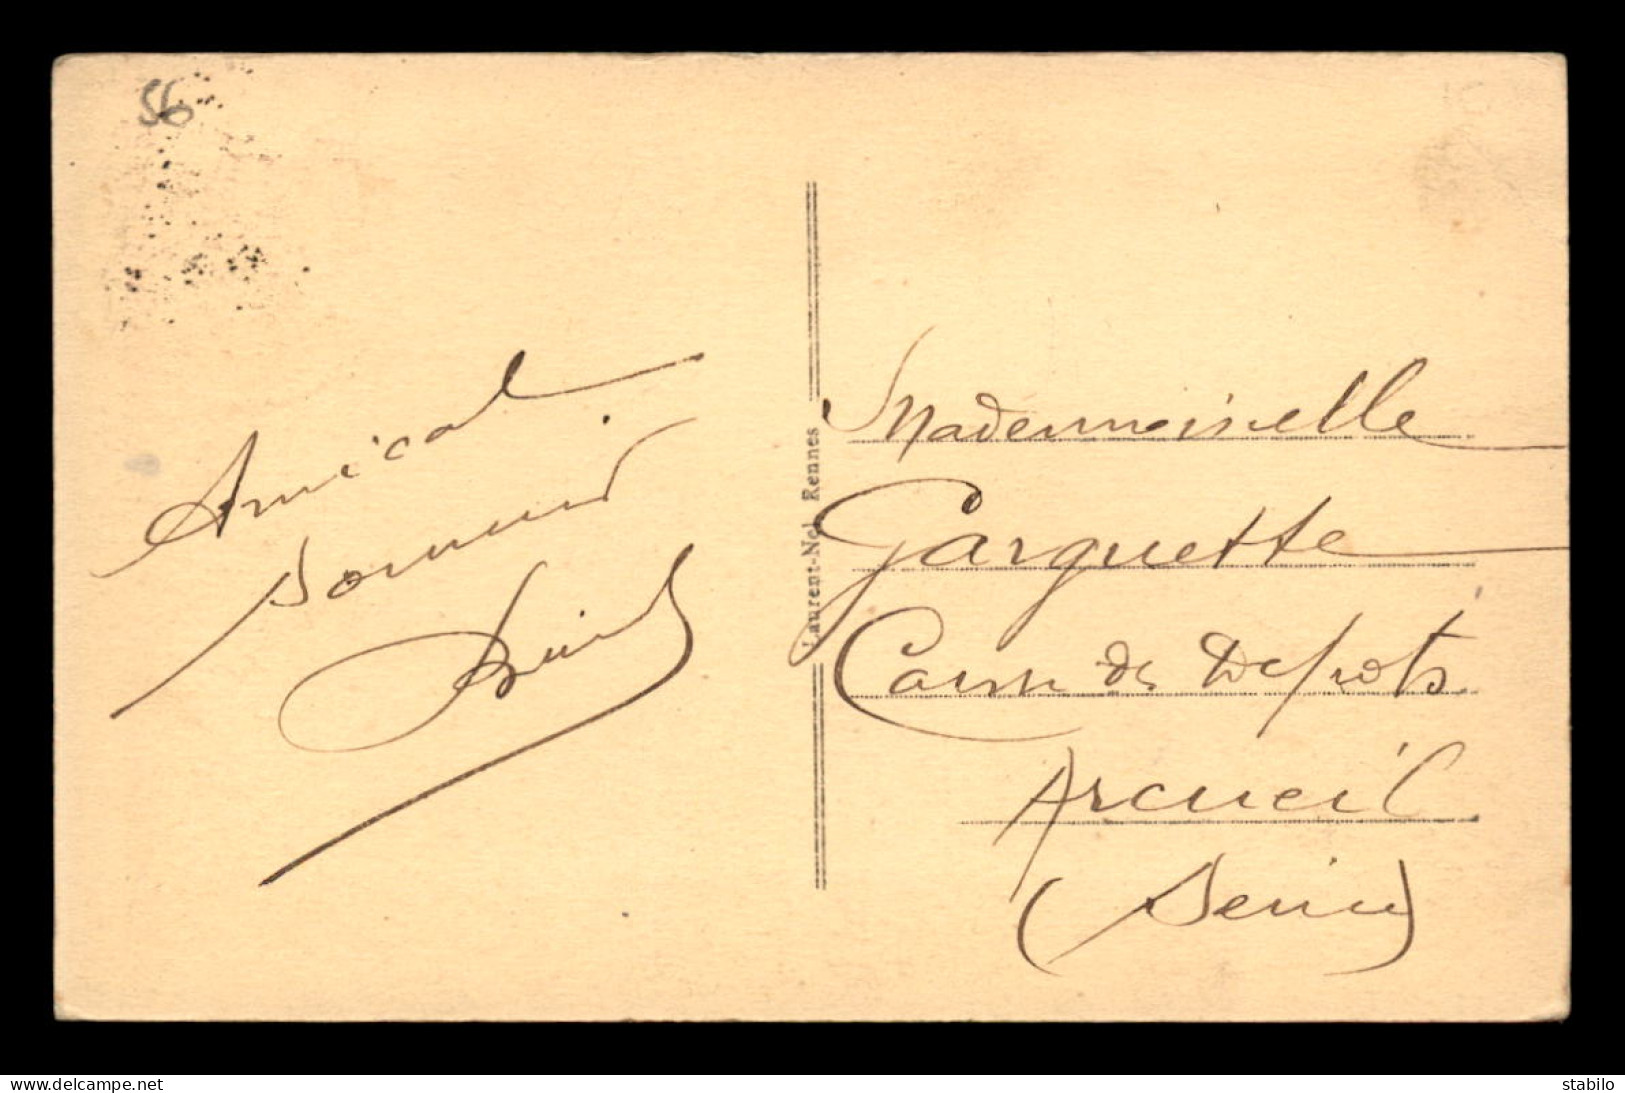 56
Amical
Souvenir
Laurent-Nel Rennes
Mademoiselle
Garguette
Caisse des Depots
Arcueil
(Seine)
www.delcampe.net
stabilo